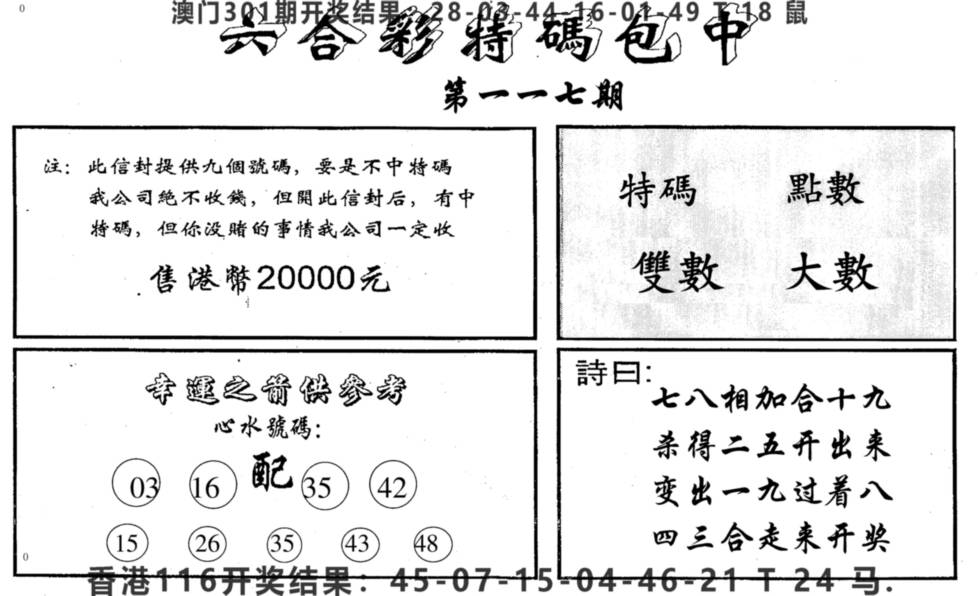 澳门301期开奖结果:28-03-44-16-01-49 T 18 鼠
六合彩特碼包中
第一一七期
注：此信封提供九個號碼，要是不中特碼
我公司絶不收錢，但開此信封后，有中
特碼，但你没賭的事情我公司一定收
售港幣20000元
特碼 點數
雙數 大數
幸運之前供參考
心水號碼：
03 16 配 35 42
15 26 35 43 48
詩曰:
七八相加合十九
杀得二五开出来
变出一九过着八
四三合走来开奖
香港116开奖结果：45-07-15-04-46-21 T 24 马.